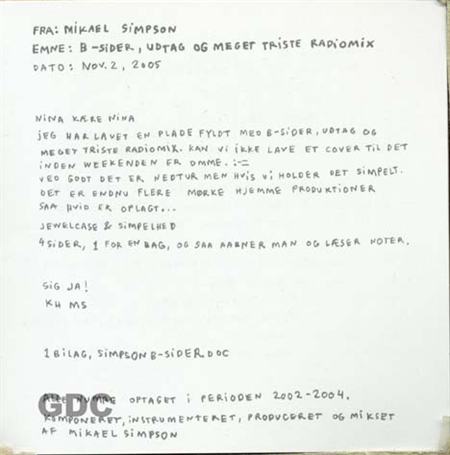 FRA: MIKAEL SIMPSON
EMNE: B-SIDER, UDTAG OG MEGET TRISTE RADIOMIX
DATO: NOV. 2, 2005
NINA KÆRE NINA
JEG HAR LAVET EN PLADE FYLDT MED B-SIDER, UDTAG OG
MEGET TRISTE RADIOMIX. KAN VI IKKE LAVE ET COVER TIL DET
INDEN WEEKENDEN ER OMME. :-=
VED GODT DET ER NEDTUR MEN HVIS VI HOLDER DET SIMPELT.
DET ER ENDNU FLERE MØRKE HJEMME PRODUKTIONER
SAA HVID ER OPLAGT...
JEWELCASE & SIMPELHED
4 SIDER, 1 FOR EN BAG, OG SAA AABNER MAN OG LÆSER NOTER.
SIG JA!
KH MS
1 BILAG, SIMPSON B-SIDER.DOC
GDC
ALLE NUMRE OPTAGET I PERIODEN 2002-2004.
KOMPONERET, INSTRUMENTERET, PRODUCERET OG MIKSET
AF MIKAEL SIMPSON